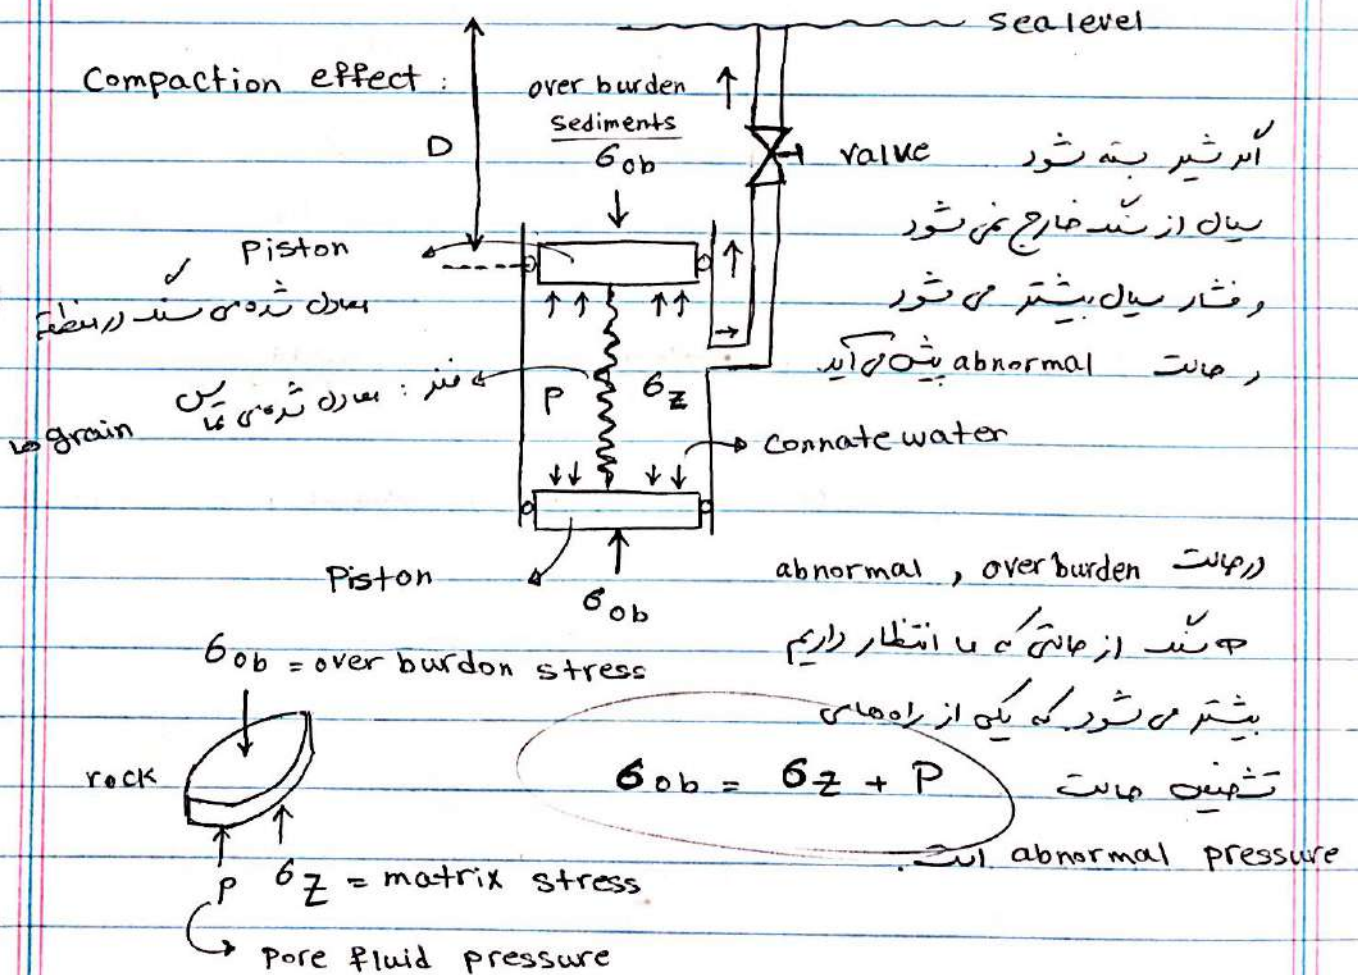 sea level
Compaction effect :
over burden
sediments
σob
D
valve
اگر شیر بسته شود
سیال از سنگ خارج نمی شود
و فشار سیال بیشتر می شود
و حالت abnormal پیش می آید.
Piston
معادل شده ی سنگ در منطقه
فنر : معادل شده ی تماس
grain ها
P σz
connate water
Piston
σob
در حالت abnormal , over burden
سنگ از حالتی که ما انتظار داریم
بیشتر می شود که یکی از راه های
تشخیص حالت
abnormal pressure است.
σob = over burdon stress
rock
σob = σz + P
P σz = matrix stress
pore fluid pressure